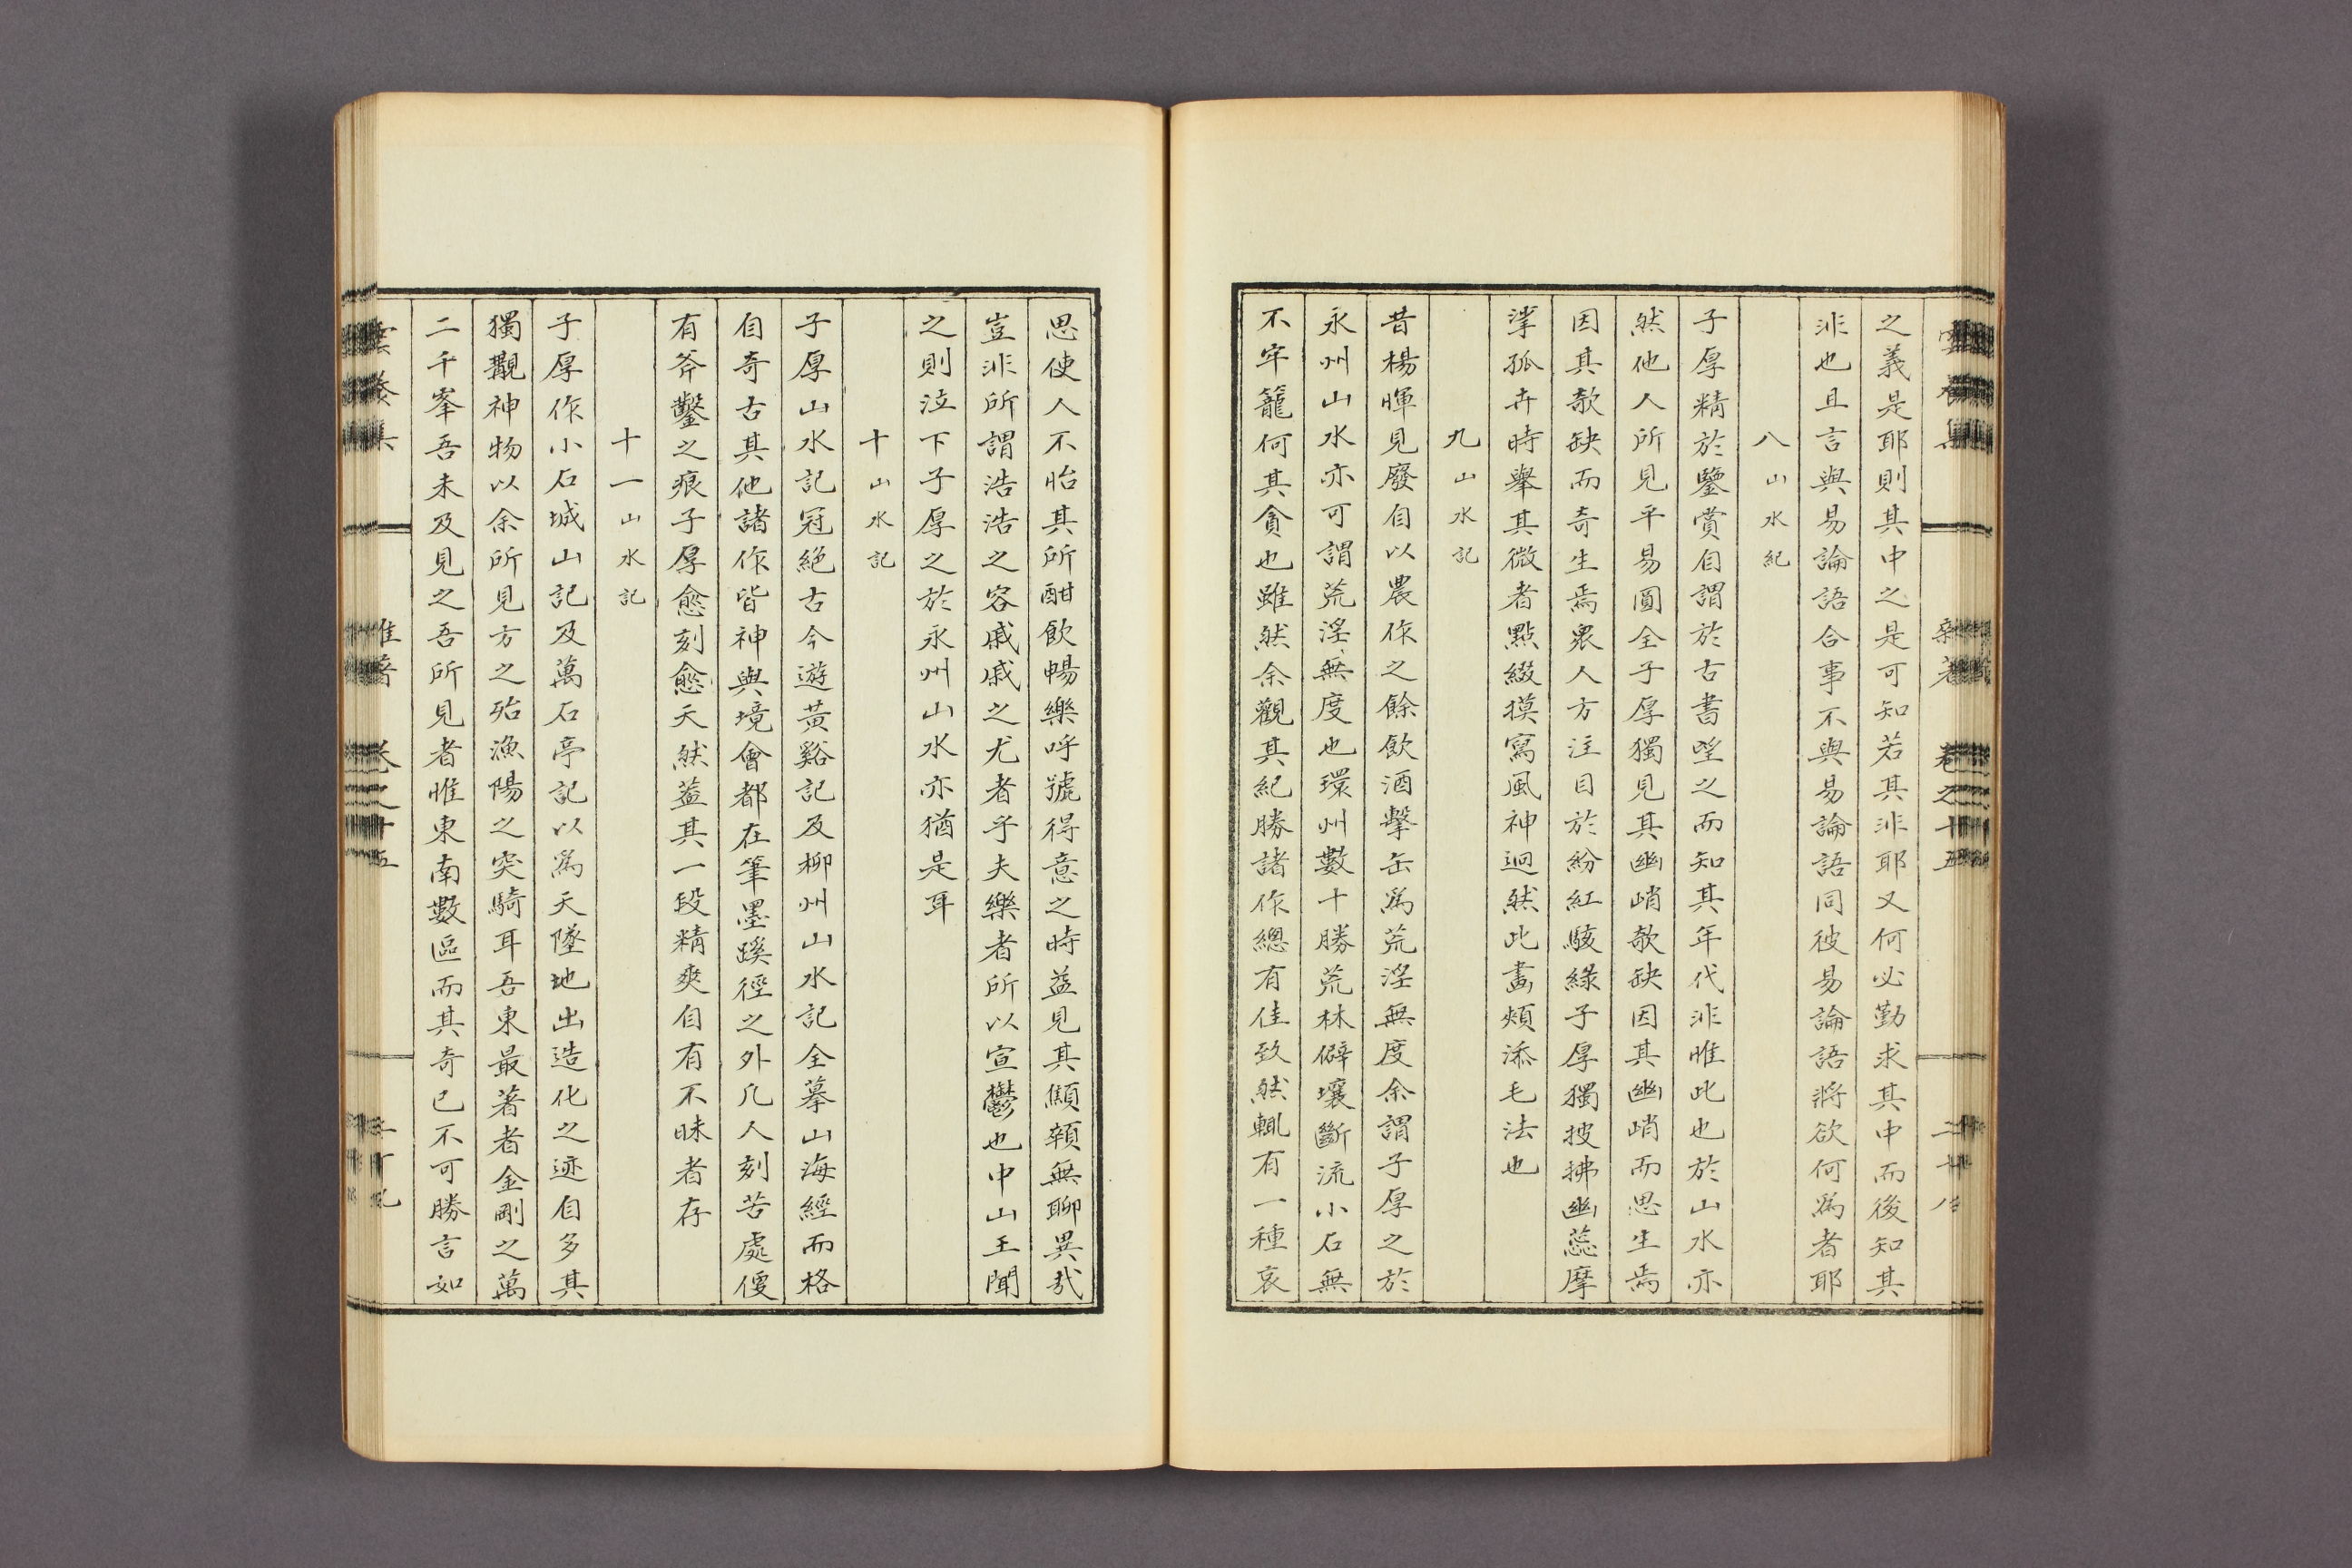 之義是耶則其中之是可知若其非耶又何必勤求其中而後知其
非也且言與易論語合事不與易論語同彼易論語將欲何爲者耶
八 山水紀
子厚精於鑒賞自謂於古書望之而知其年代非惟此也於山水亦
然他人所見平易圓全子厚獨見其幽峭欹缺因其幽峭而思生焉
因其欹缺而奇生焉衆人方注目於紛紅駭綠子厚獨披拂幽蕊摩
挲孤卉時擧其微者點綴摸寫風神逈然此畵頰添毛法也
九 山水記
昔楊暉見廢自以農作之餘飮酒擊缶爲荒淫無度余謂子厚之於
永州山水亦可謂荒淫無度也環州數十勝荒林僻壤斷流小石無
不牢籠何其貪也雖然余觀其紀勝諸作總有佳致然輒有一種哀
思使人不怡其所酣飮暢樂呼號得意之時益見其顣頞無聊異哉
豈非所謂浩浩之容戚戚之尤者乎夫樂者所以宣鬱也中山王聞
之則泣下子厚之於永州山水亦猶是耳
十 山水記
子厚山水記冠絶古今遊黃谿記及柳州山水記全摹山海經而格
自奇古其他諸作皆神與境會都在筆墨蹊徑之外凡人刻苦處便
有斧鑿之痕子厚愈刻愈天然蓋其一段精爽自有不昧者存
十一 山水記
子厚作小石城山記及萬石亭記以爲天墜地出造化之迹自多其
獨觀神物以余所見方之殆漁陽之突騎耳吾東最著者金剛之萬
二千峯吾未及見之吾所見者惟東南數區而其奇已不可勝言如